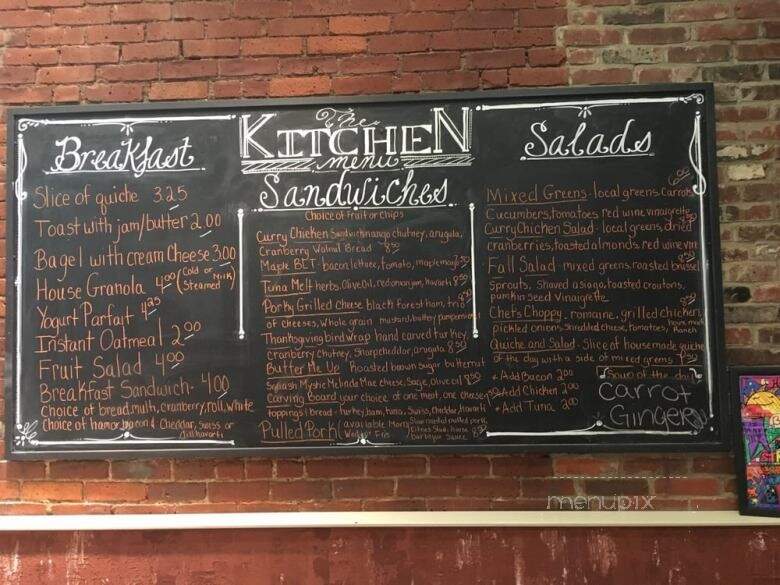 The
KITCHEN
menu
Breakfast
Slice of quiche 3.25
Toast with jam/butter 2.00
Bagel with cream Cheese 3.00
House Granola 4.00 (Cold or Steamed Milk)
Yogurt Parfait 4.25
Instant Oatmeal 2.00
Fruit Salad 4.00
Breakfast Sandwich - 4.00
Choice of bread, multi, cranberry, roll, white
Choice of ham or bacon & Cheddar, Swiss or
dill havarti
Sandwiches
Choice of Fruit or Chips
Curry Chicken Sandwich mango chutney, arugula,
Cranberry Walnut Bread 8.50
Maple BLT - bacon lettuce, tomato, maple mayo
Tuna Melt herbs, Olive Oil, red onion, havarti
Porky Grilled Cheese black forest ham, trio
of cheeses, whole grain mustard, butter
Thanksgiving bird wrap hand carved turkey,
cranberry Chutney, Sharp cheddar, arugula 8.50
Butter Me Up Roasted brown sugar butternut
Squash Mystic Melinda Mae cheese, Sage, Olive oil
Carving Board your choice of one meat, one Cheese,
toppings & bread - turkey, ham, tuna, Swiss, Cheddar, havarti
Pulled Pork (available Mon, Slow roasted pulled pork,
Wed & Fri) Citrus Slaw, house
barbeque Sauce
Salads
Mixed Greens - local greens, Carrots,
Cucumbers, tomatoes red wine vinaigrette
Curry Chicken Salad - local greens, dried
cranberries, toasted almonds, red wine vin
Fall Salad - mixed greens, roasted brussel
Sprouts, Shaved asiago, toasted croutons,
pumpkin seed Vinaigrette
Chefs Choppy - romaine, grilled chicken,
pickled onions, Shredded cheese, tomatoes, house made Ranch
Quiche and Salad - Slice of housemade quiche
of the day with a side of mixed greens
+ Add Bacon 2.00
+ Add Chicken 2.00
+ Add Tuna 2.00
Soup of the day
Carrot
Ginger
menupix